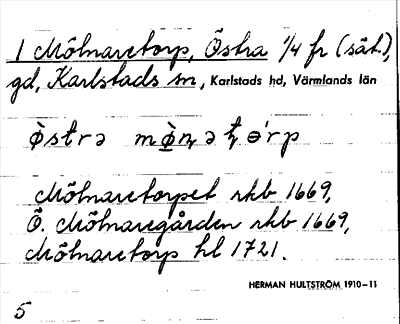 1 Mölnaretorp, Östra 1/4 fr (sät.),
gd, Karlstads sn, Karlstads hd, Värmlands län
östrə
Mölnaretorpet rkb 1669,
Ö. Mölnaregården rkb 1669,
Mölnaretorp hl 1721.
HERMAN HULTSTRÖM 1910-11
5